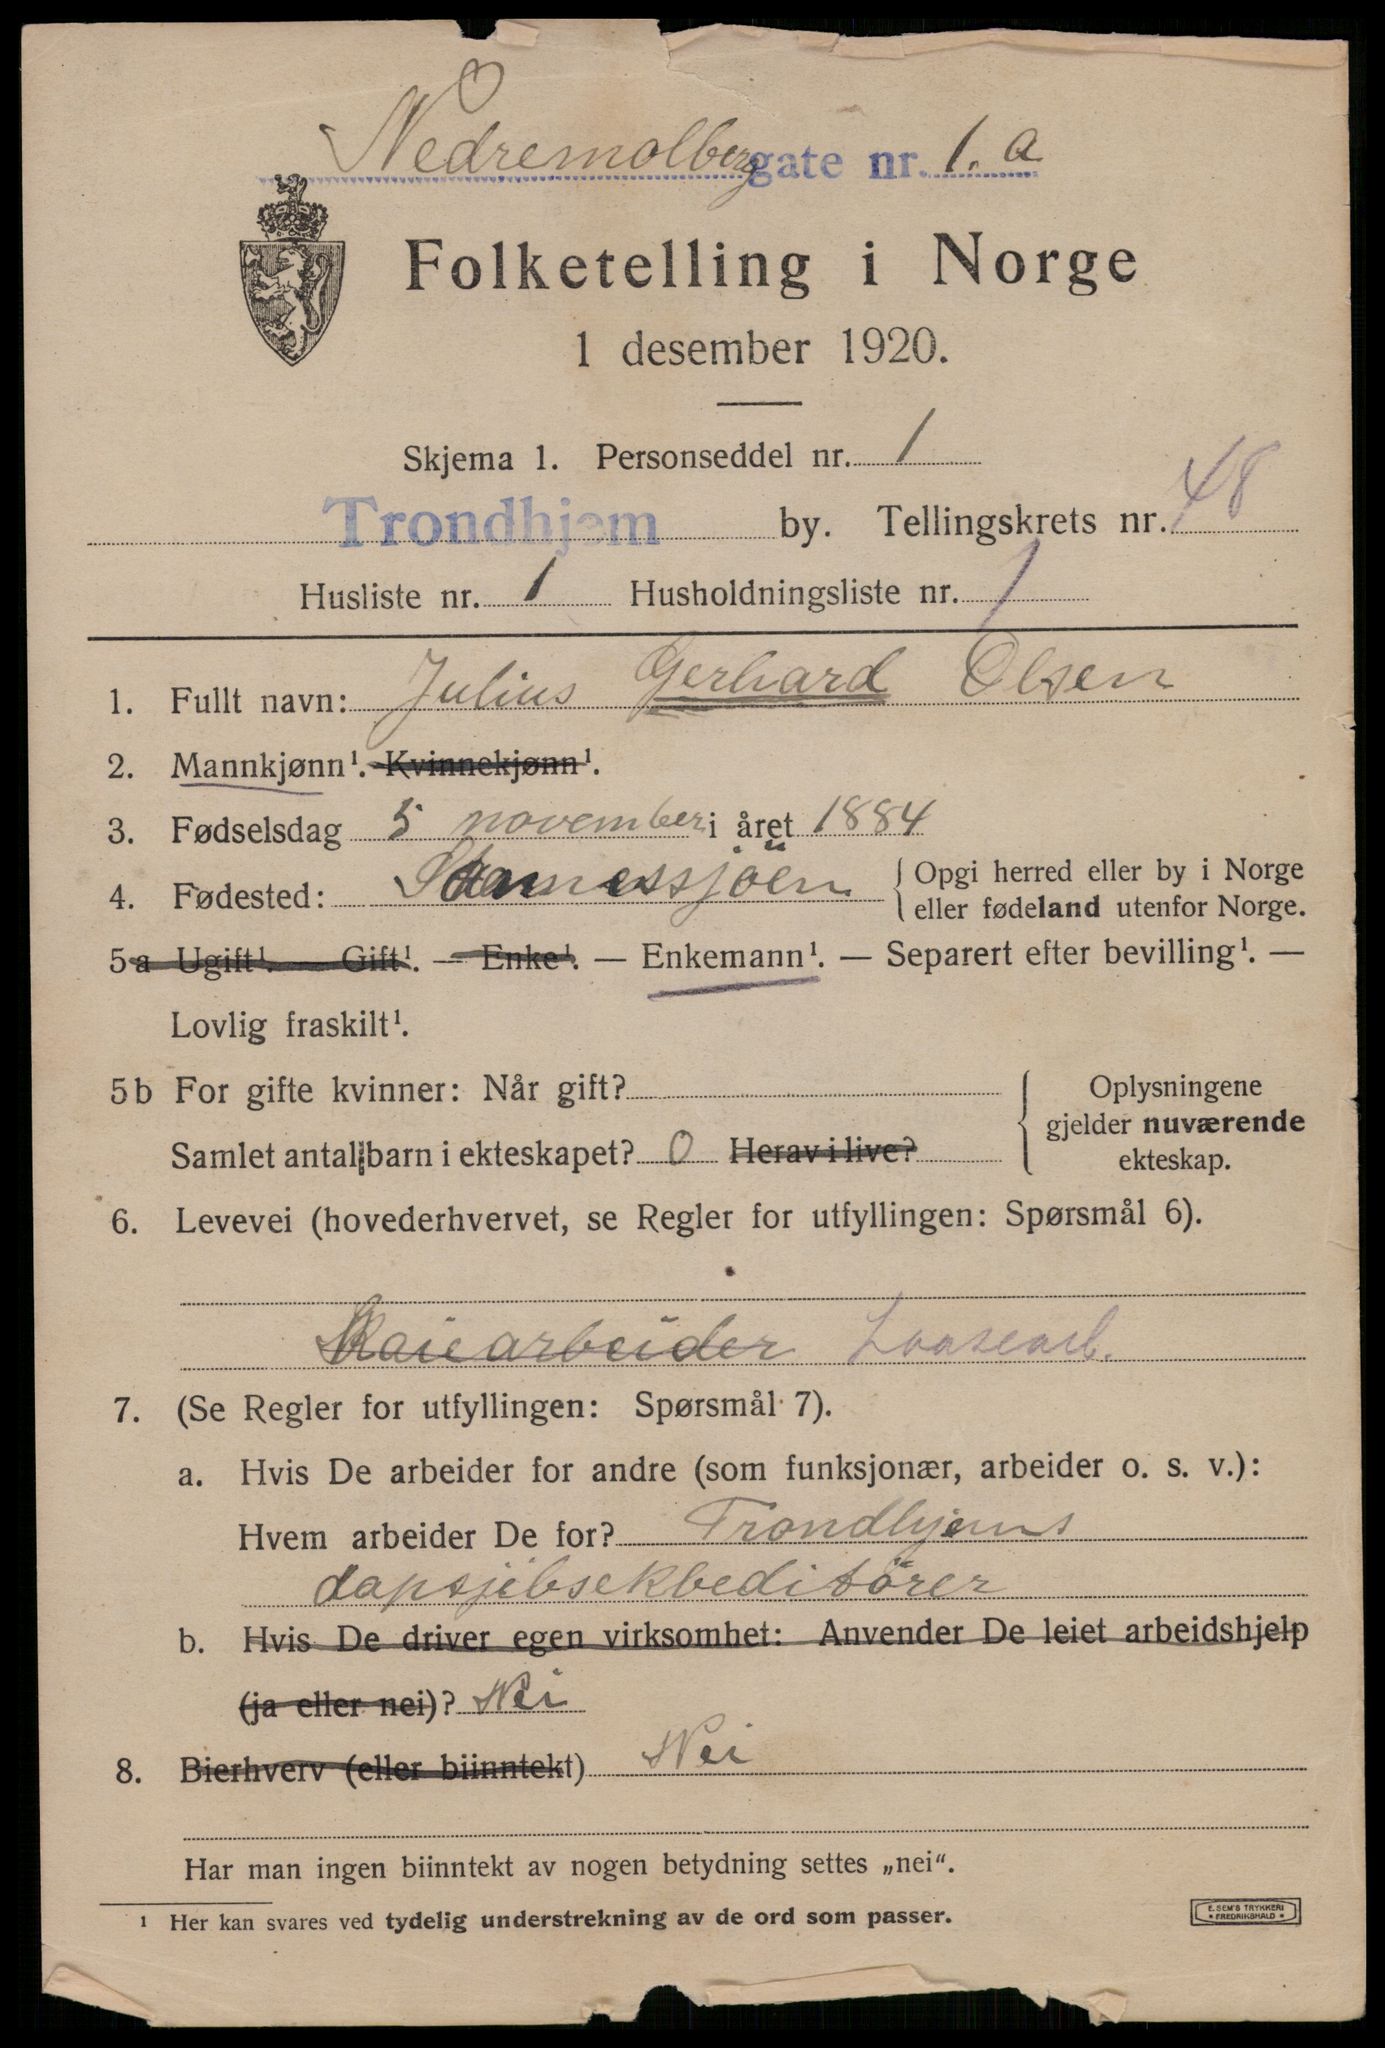 Nedremolberg gate nr. 1. a
Folketelling i Norge
1 desember 1920.
Skjema 1. Personseddel nr. 1
Trondhjem by. Tellingskrets nr. 48
Husliste nr. 1 Husholdningsliste nr. 1
1. Fullt navn: Julius Gerhard Olsen
2. Mannkjønn¹. Kvinnekjønn¹.
3. Fødselsdag 5 november i året 1884
4. Fødested: { Opgi herred eller by i Norge
eller fødeland utenfor Norge.
5a Ugift¹. — Gift¹. — Enke¹. — Enkemann¹. — Separert efter bevilling¹. —
Lovlig fraskilt¹.
5b For gifte kvinner: Når gift?
Samlet antal barn i ekteskapet? 0 Herav i live?
{ Oplysningene
gjelder nuværende
ekteskap.
6. Levevei (hovederhvervet, se Regler for utfyllingen: Spørsmål 6).
Kaiearbeider Løsearb.
7. (Se Regler for utfyllingen: Spørsmål 7).
a. Hvis De arbeider for andre (som funksjonær, arbeider o. s. v.):
Hvem arbeider De for? Trondhjems
dapsjibsekbeditörer
b. Hvis De driver egen virksomhet: Anvender De leiet arbeidshjelp
(ja eller nei)? Nei
8. Bierhverv (eller biinntekt) Nei
Har man ingen biinntekt av nogen betydning settes „nei“.
¹ Her kan svares ved tydelig understrekning av de ord som passer.
E. SEM'S TRYKKERI
* FREDRIKSHALD *